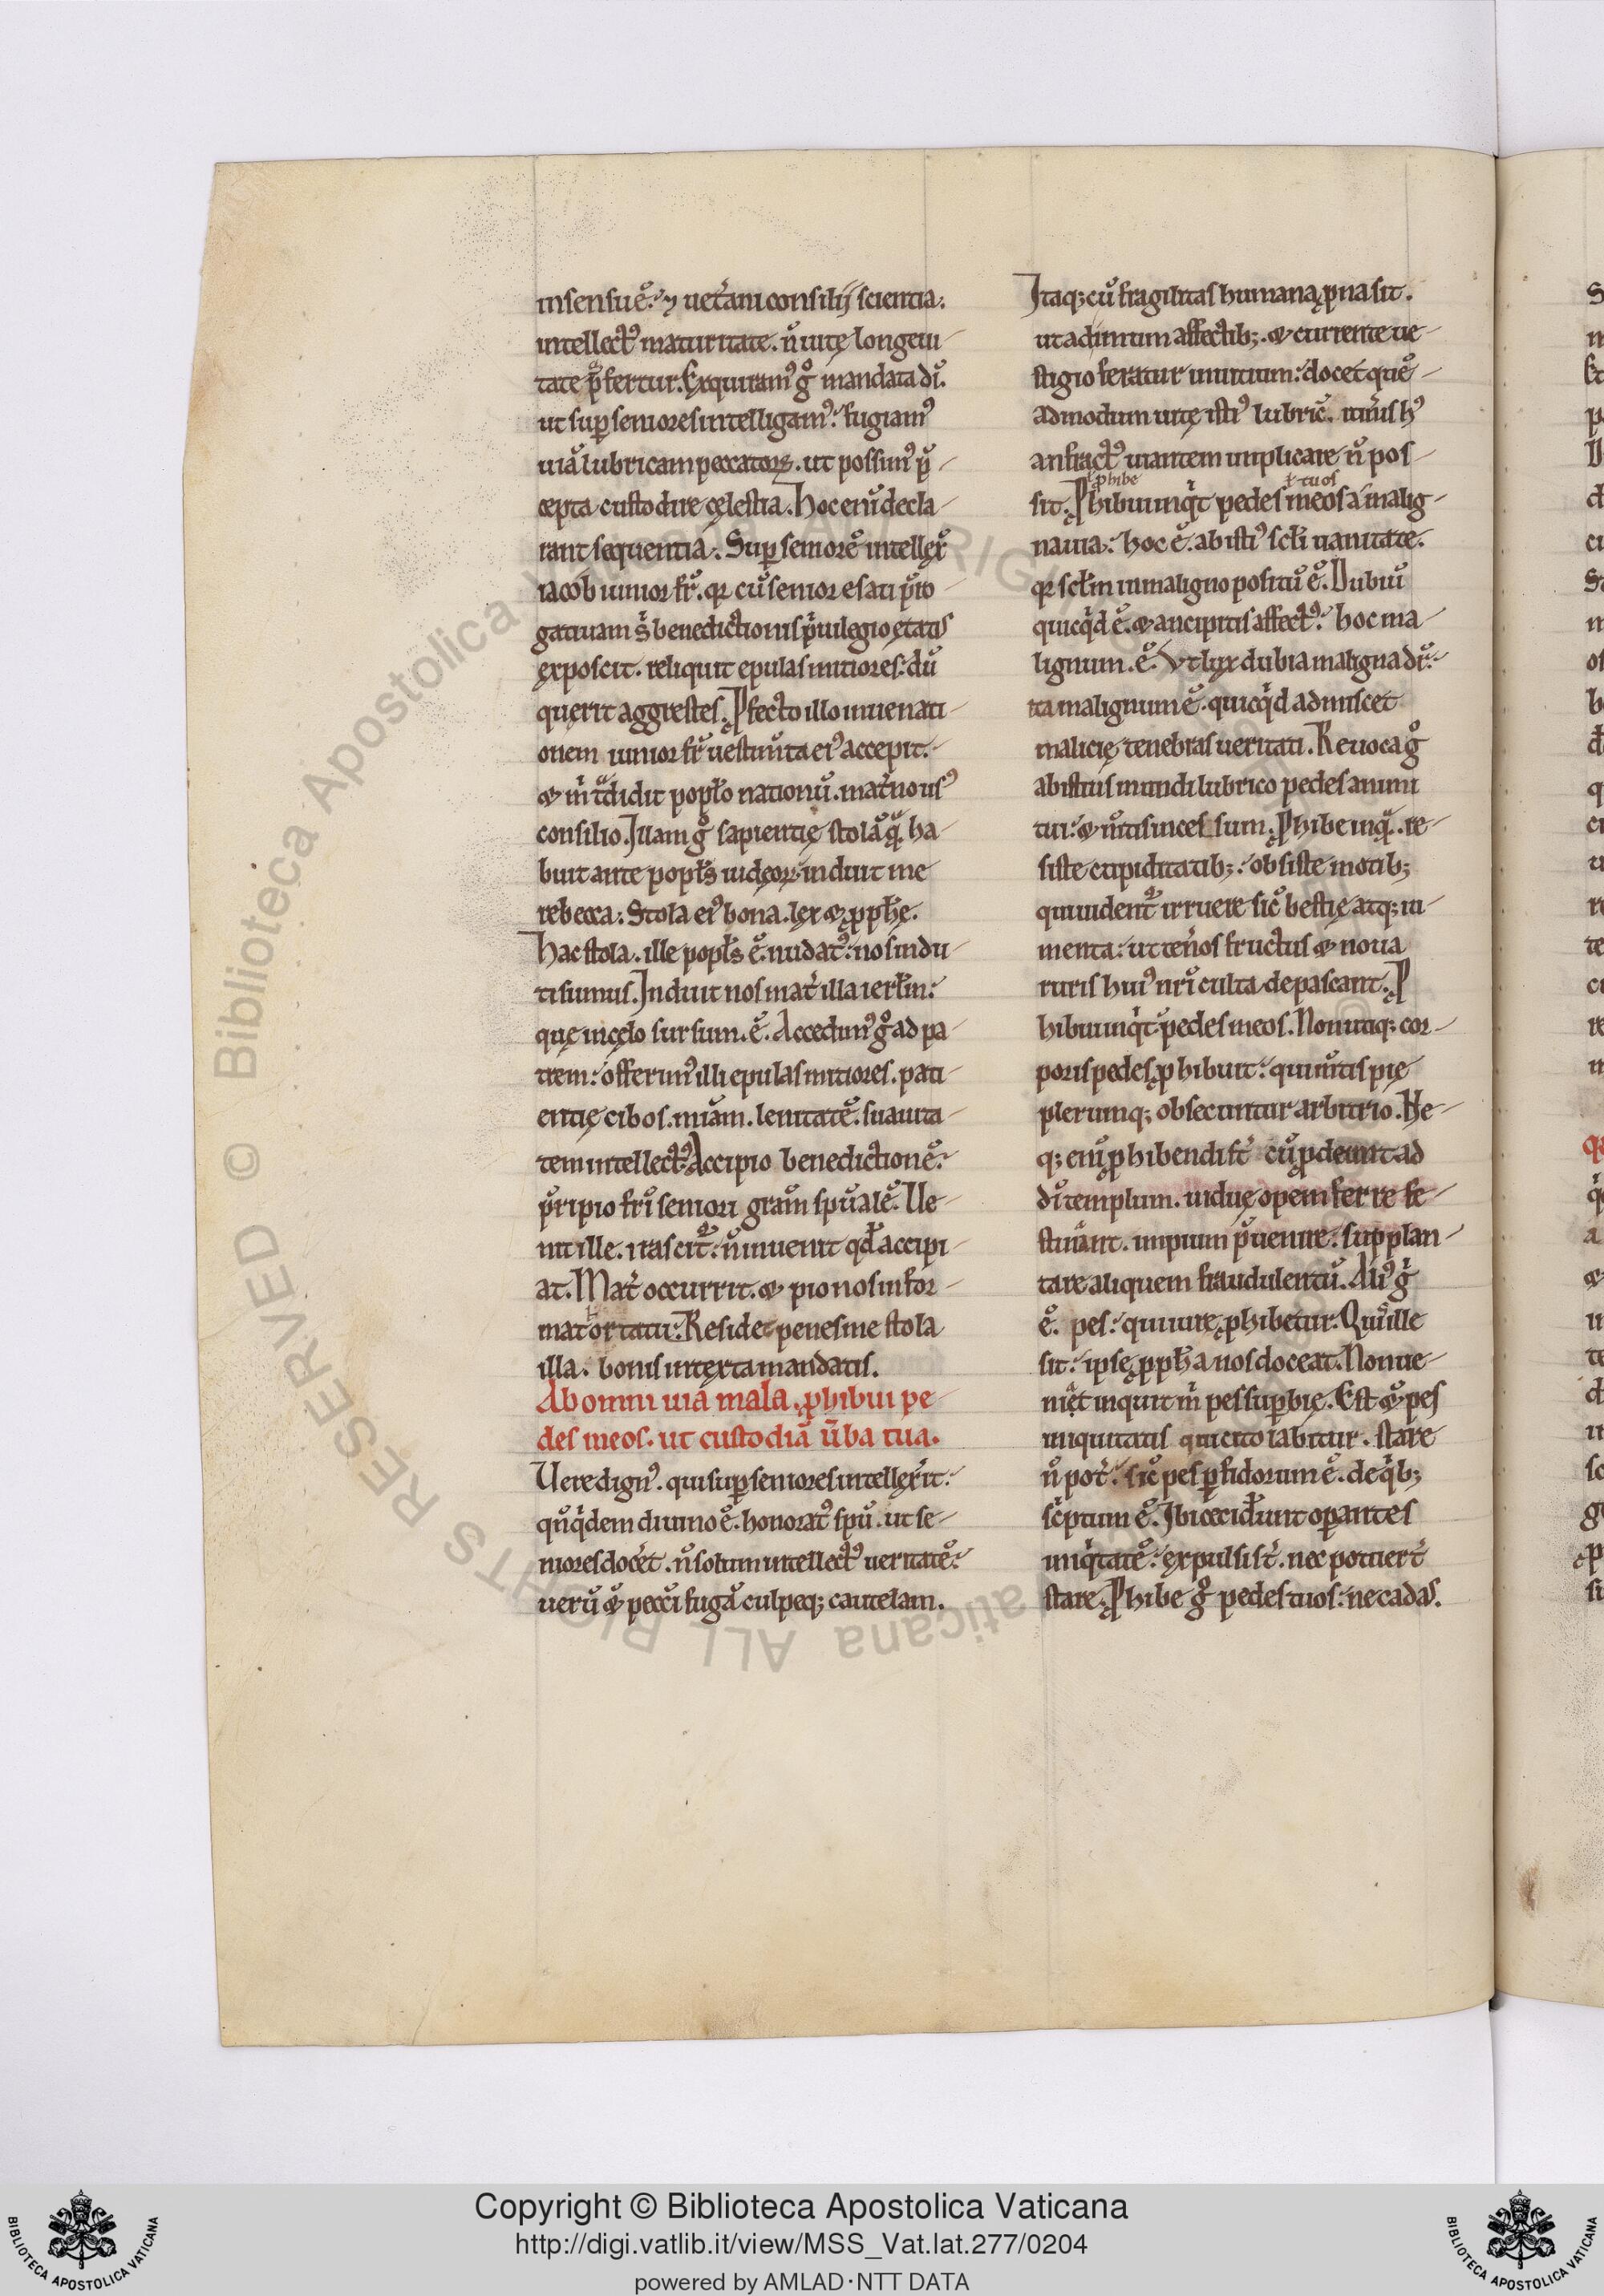 in sensu ē. ⁊ uet̄ani consilij scientia.
intellect᷒ maturitate. ñ uitę longeui-
tate p̄fertur. Exquiram᷒ g̊ mandata dī.
ut sup̱ seniores intelligam᷒. fugiam᷒
uiā lubricam peccatoꝝ. ut possim᷒ p̄-
cepta custodire cęlestia. Hoc enī decla-
rant sequentia. Sup̱ seniorē intellex̄
iacob iunior fr̄. qꝛ cū senior esau p̄ro-
gatiuam s̄ benedictionis p̄uilegio ętatis
exposcit. reliquit epulas mitiores. dū
querit aggrestes. Ꝓfecto illo in uenati-
onem iunior fr̄ uestim̄ta ei᷒ accepit.
& m̄ t̄didit popl̄o nationū. mat̄no us᷒
consilio. Illam g̊ sapientię stolā q̄. ha-
buit ante popl̄s iudęoꝝ induit me
rebecca. Stola ei᷒ bona. lex & ꝓph̄ę.
Hac stola. ille popl̄s ē. nudat᷒. nos indu-
ti sumus. Induit nos mat̄ illa ierl̄m.
quę in cęlo sursum. ē. Accedim᷒ g̊ ad pa-
trem. offerim᷒ illi epulas mitiores. pati-
entię cibos. miam̄. lenitatē. suauita-
tem intellect᷒. Accipio benedictionē.
p̄ripio fr̄i seniori gram̄ spūalē. Ue-
nit ille. irascit᷑. ñ inuenit qd̄ accipi-
at. Mat̄ occurrit. & pio nos infor-
mat ortatu. Resident penes me stola
illa. bonis intexta mandatis.
Ab omni uia mala. ꝓhibui pe-
des meos. ut custodiā ūba tua.
Uere dign᷒. qui sup̱ seniores intellex̄it.
qñq̄dem diuino ē. honorat᷒ spū. ut se-
niores docet̄. ñ solum intellect᷒ ueritatē.
uerū & pecc̄i fugā culpęq; cautelam.
Itaq; cū fragilitas humana ꝓna sit.
ut ad intimum affectib;. & currente ue-
stigio feratur in uitium. docet quē-
admodum uitę isti᷒ lubric̄. itin̄is h᷒
anfract᷒ uiantem implicare ñ pos-
ꝓhibe ł tuos
sit. Ꝓhibui inq̄t pedes meos a malig-
na uia. hoc ē. ab isti᷒ scl̄i uanitate.
qꝛ scl̄m in maligno positū ē. Dubiū
quicq̄d ē. & ancipitis affect᷒. hoc ma-
lignum. ē. Vt lux dubia maligna dr̄.
ita malignum ē. quicq̄d admiscet
malicię tenebras ueritati. Reuoca g̊
ab istius mundi lubrico pedes animi
tui. & m̄tis incessum. Ꝓhibe inq̄. re-
siste cupiditatib;. obsiste motib;
qui uident᷑ irruere sic̄ bestię atq; iu-
menta. ut ten̄os fructus & noua
ruris hui᷒ nr̄i culta depascant. Ꝓ
hibui inq̄t pedes meos. Non utiq; cor-
poris pedes ꝓhibuit. qui m̄tis pię
plerumq; obsecuntur arbitrio. Ne-
q; enī ꝓhibendi st̄ cū ꝓdeunt ad
dī templum. uiduę opem ferre fe-
stinant. impium p̄uenire. supplan-
tare aliquem fraudulentū. Ali᷒ g̊
ē. pes. qui iure ꝓhibetur. Quī ille
sit. ipse ꝓph̄a nos doceat. Non ue-
niet inquit m̄ pes sup̱bię. Est & pes
iniquitatis qui cito labitur. stare
ñ pot̄. sic̄ pes p̱fidorum ē. de q̄b;
sc̄ptum ē. Ibi ceciderunt op̱antes
iniq̄tatē. expulsi st̄. nec potuer̄t
stare. Ꝓhibe g̊ pedes tuos. ne cadas.
Copyright © Biblioteca Apostolica Vaticana
http://digi.vatlib.it/view/MSS_Vat.lat.277/0204
powered by AMLAD·NTT DATA